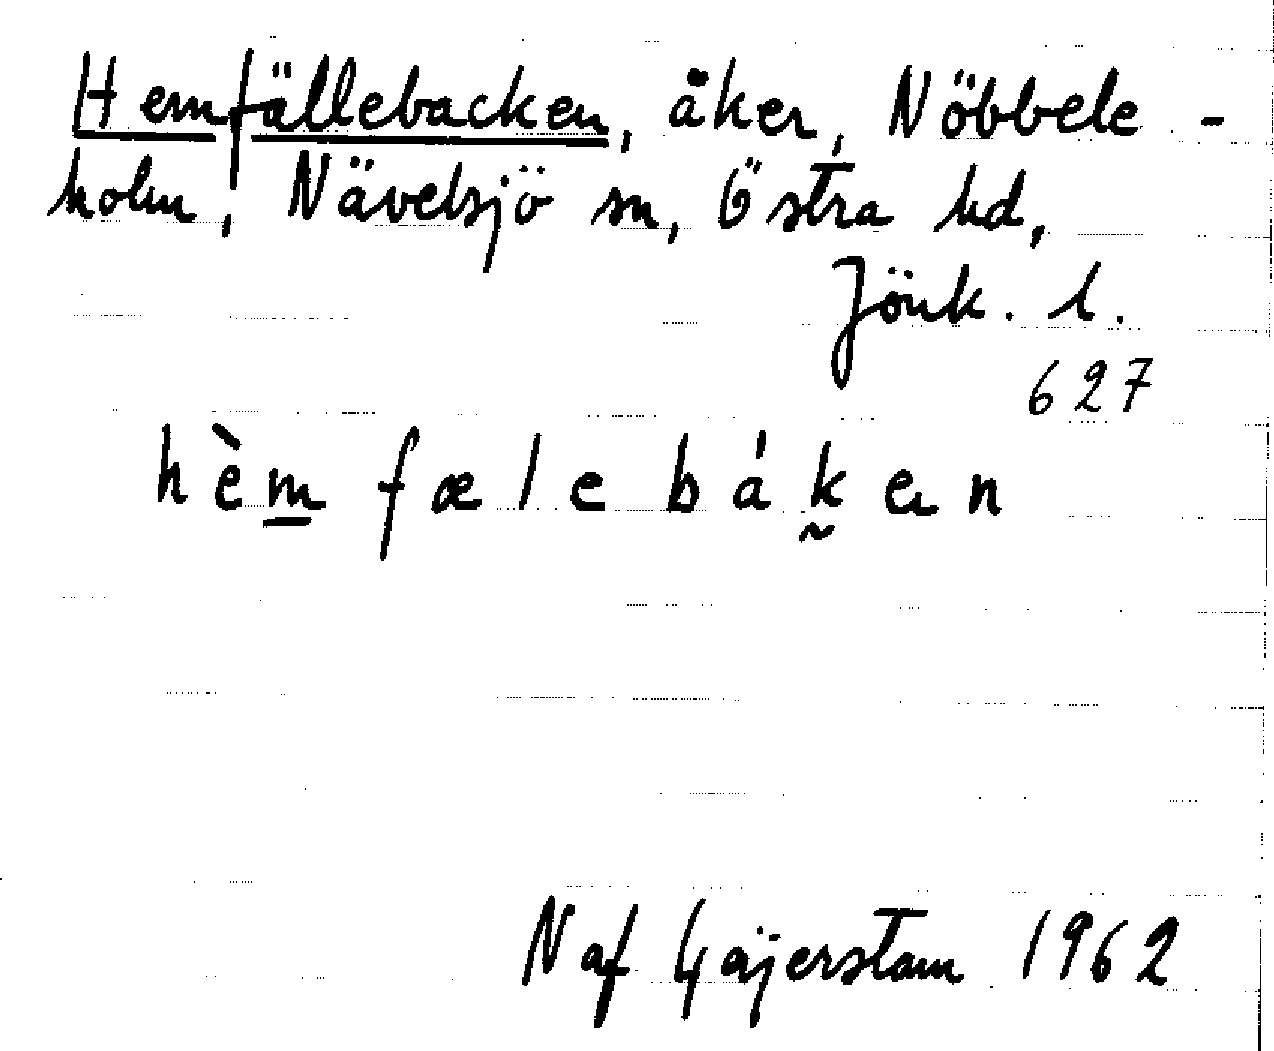 Hemfällebacken, åker, Nöbbele-
holm, Nävelsjö sn, Östra hd,
Jönk. l.
627
hèm fælebákən
Naf Gäjerstam 1962